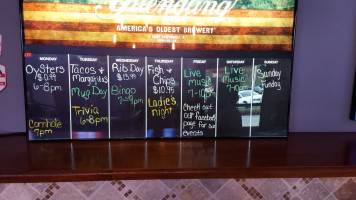 AMERICA'S OLDEST BREWERY
MONDAY
Oysters
$0.99
6-8pm
Cornhole
7pm
TUESDAY
Tacos &
Margaritas
Mug Day
Trivia
WEDNESDAY
Rib Day
$15.99
Bingo
THURSDAY
Fish &
Chips
$10.95
Ladies
night
FRIDAY
Live
music
7-10pm
Check out
our Facebook
page for our
events
SATURDAY
Live
Music
SUNDAY
Sunday
Funday